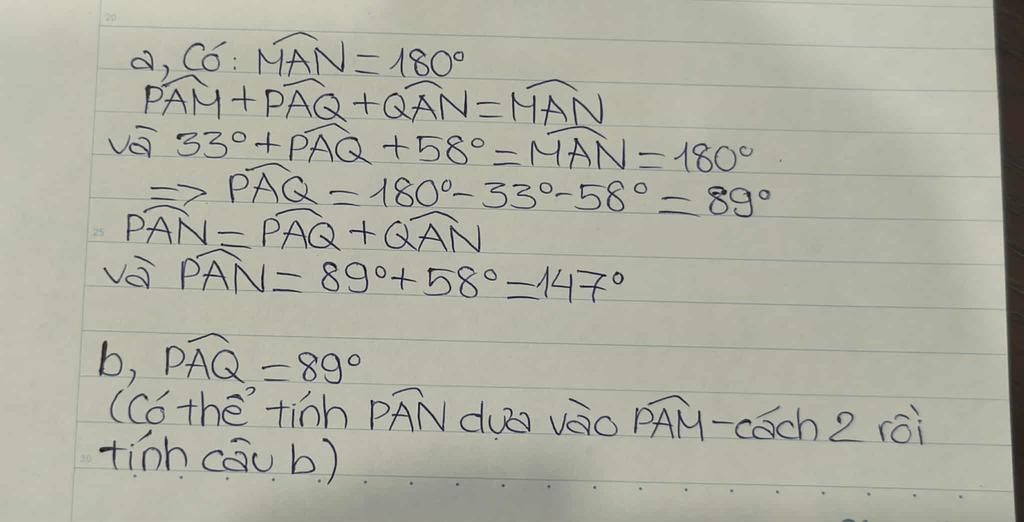 20
a, Có: MAN = 180°
PAM + PAQ + QAN = MAN
và 33° + PAQ + 58° = MAN = 180°
=> PAQ = 180° - 33° - 58° = 89°
25 PAN = PAQ + QAN
và PAN = 89° + 58° = 147°
b, PAQ = 89°
(Có thể tính PAN dựa vào PAM - cách 2 rồi
30 tính câu b)